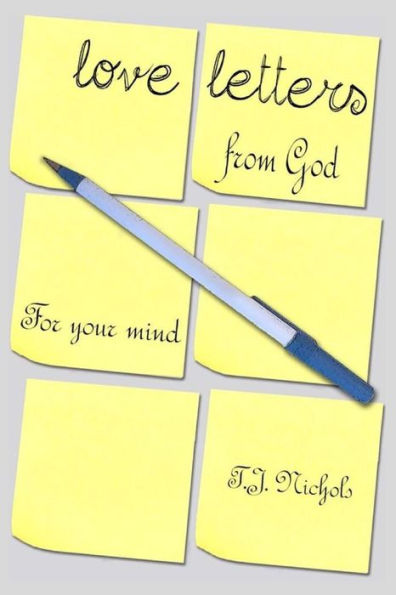 love letters
from God
For your mind
T.J. Nichols